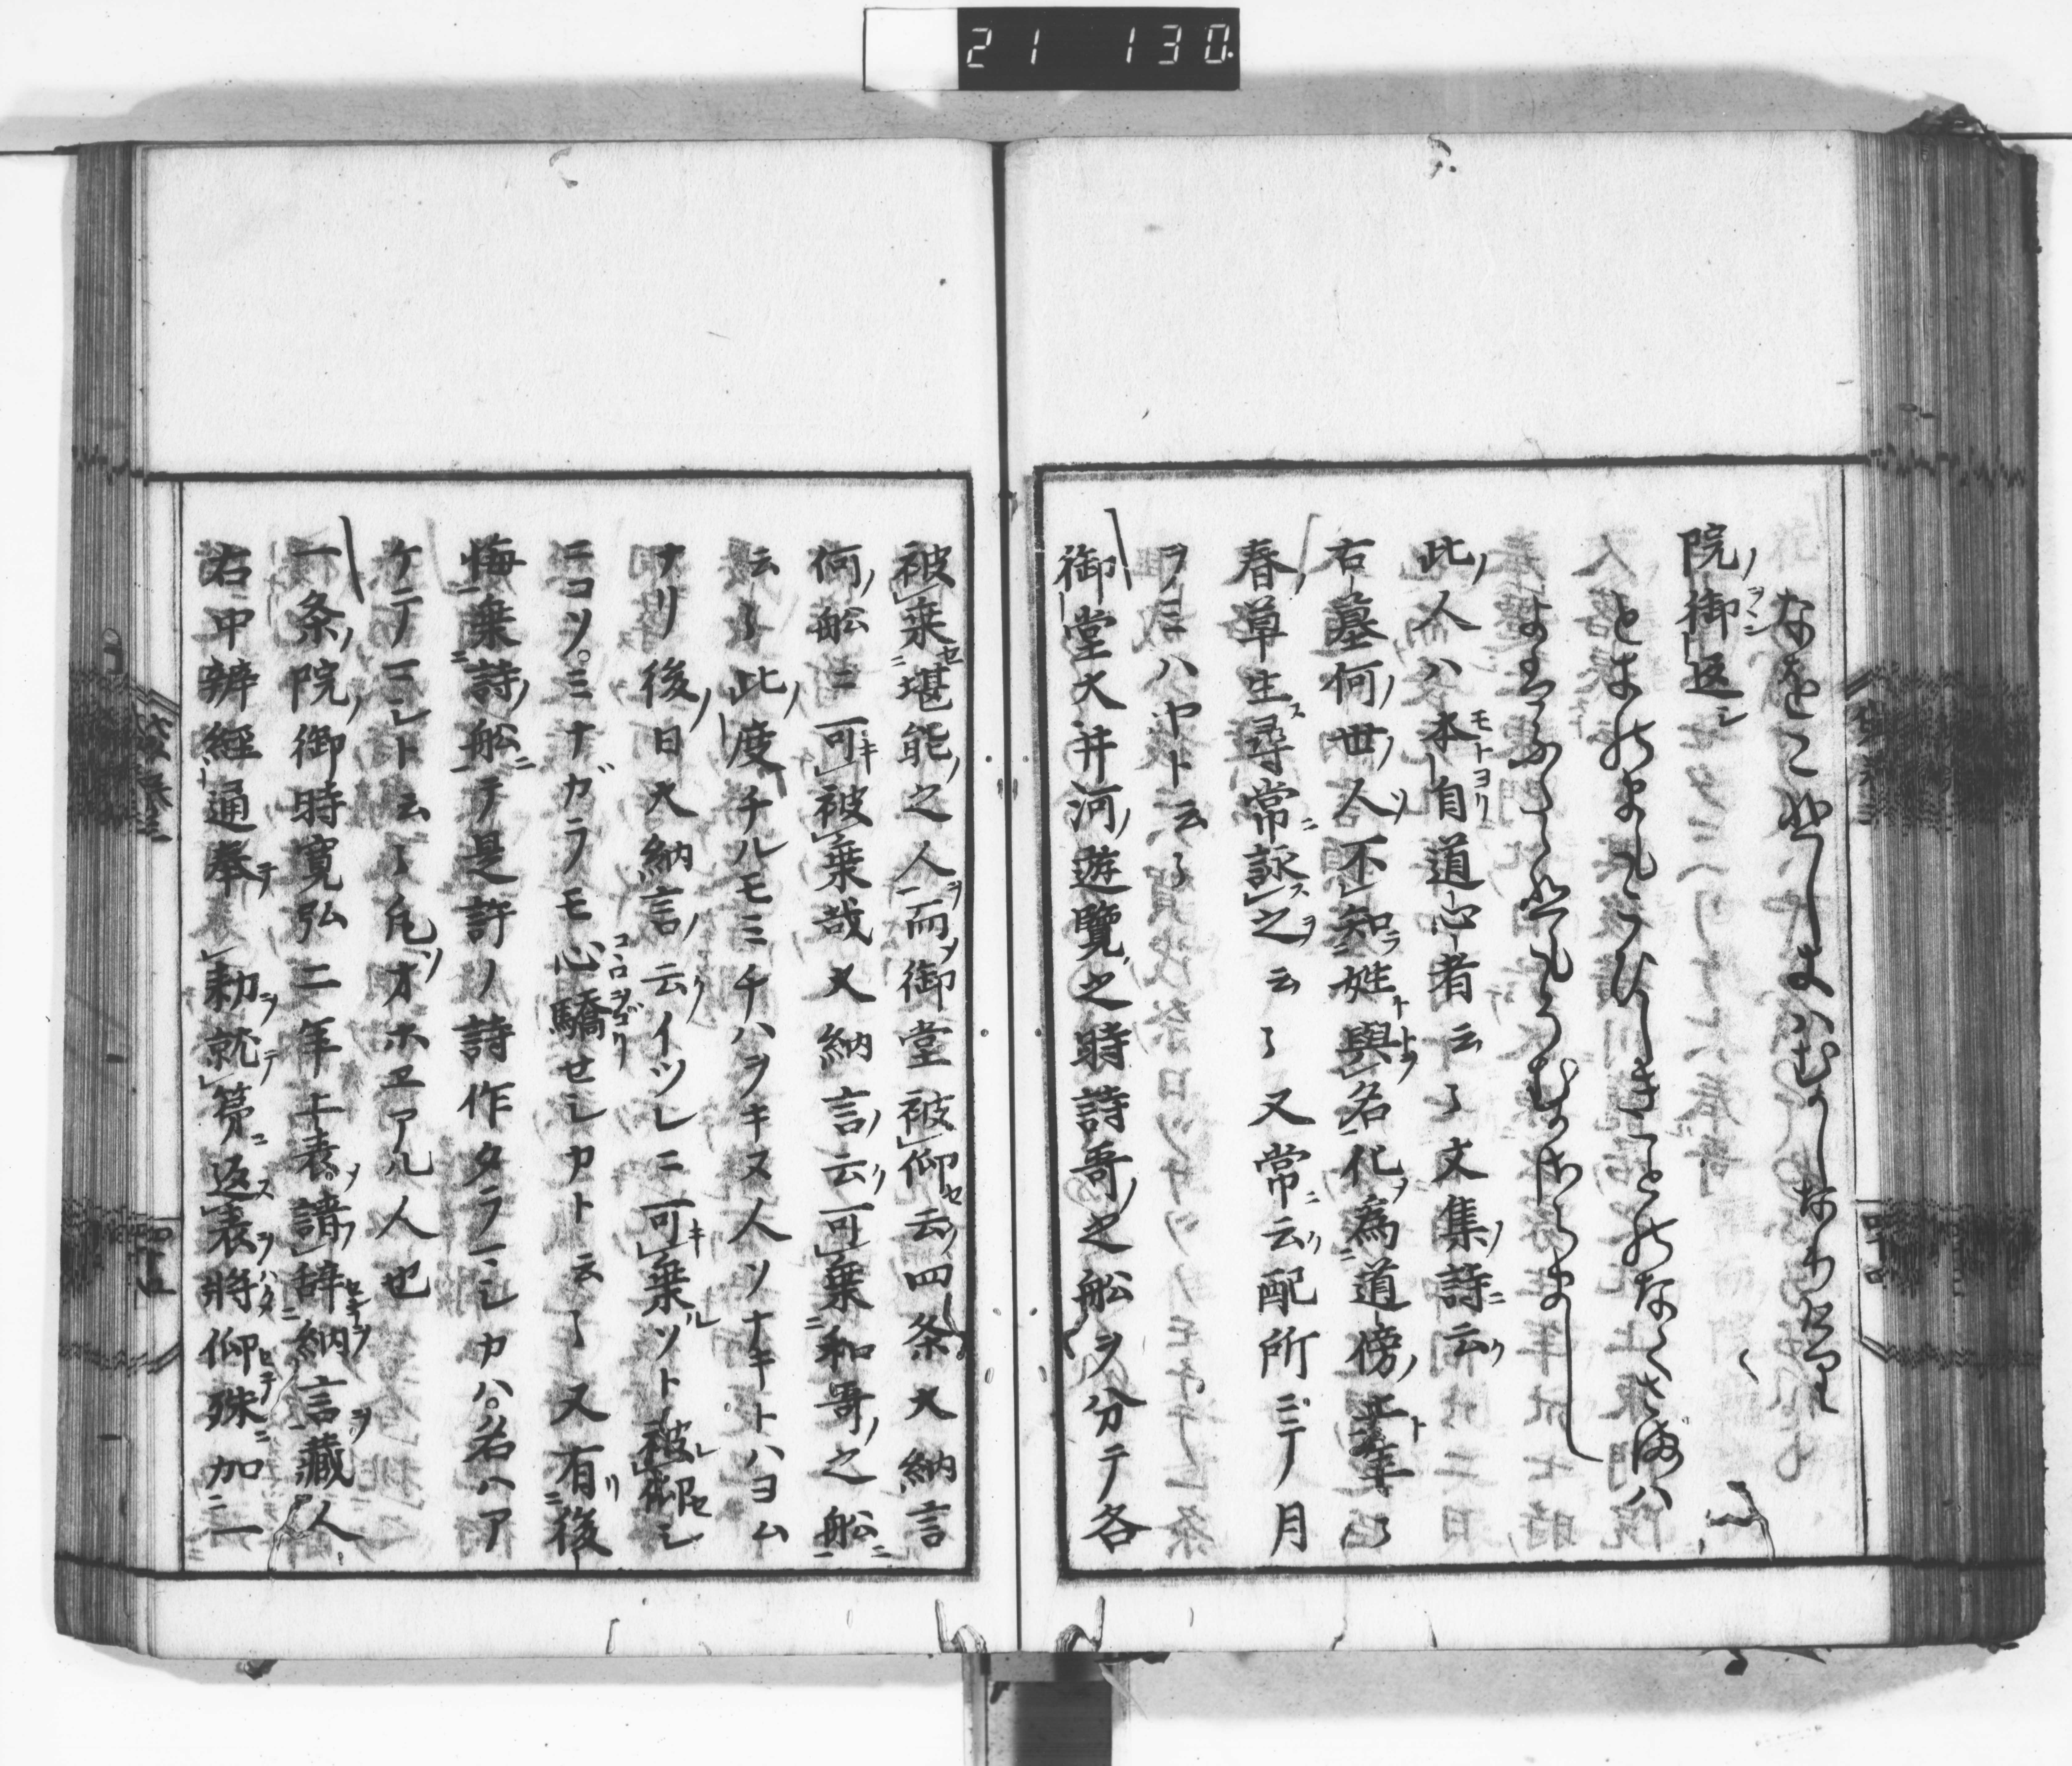 21 130
なをこひしきはむかしなりけり
院ノ御返シ
ときのまもこひしきことのなくさまハ
よはふたゝひもそむかさらまし
此ノ人ハ本自道心者云々文集ノ詩ニ云ク
右墓何ノ世ノ人不知姓與名化為道傍ノ土年々
春草生尋常詠之云々又常ニ云配所ニテノ月
ヲノミハヤト云々
御堂大井河遊覧之時詩哥ノ之舩ヲ分テ各
被乗堪能ノ之人而御堂被仰云四条大納言
何ノ舩ニ可被乗哉大納言云可乗和哥ノ之舩
云々此ノ度チルモミチハヲキヌ人ソナキトハヨム
ナリ後日大納言云イツレニ可乗ソト被仰シ
ニコソ。ミナガラモ心驕せシカト云々又有後
悔乗詩ノ舩テ是許ノ詩作タラマシカハ。名ハア
ケテマシト云々凡ソオホエアル人也
一条ノ院ノ御時寛弘二年上表。請辞納言蔵人
右中辨経通奉勅就第返表将仰殊加一